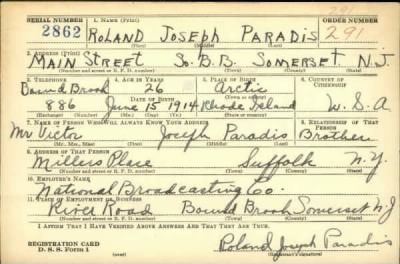 291
SERIAL NUMBER 1. NAME (Print) ORDER NUMBER
2862 ROLAND JOSEPH PARADIS 291
(First) (Middle) (Last)
2. ADDRESS (Print)
MAIN STREET SO. B. B. SOMERSET. N. J.
(Number and street or R. F. D. number) (Town) (County) (State)
3. TELEPHONE 4. AGE IN YEARS 5. PLACE OF BIRTH 6. COUNTRY OF CITIZENSHIP
Bound Brook 26 Arctic
DATE OF BIRTH
886 June 15 1914 Rhode Island U. S. A
7. NAME OF PERSON WHO WILL ALWAYS KNOW YOUR ADDRESS 8. RELATIONSHIP OF THAT PERSON
Mr Victor Joseph Paradis Brother
(Mr., Mrs., Miss) (First) (Middle) (Last)
9. ADDRESS OF THAT PERSON
Millers Place Suffolk N. Y.
(Number and street or R. F. D. number) (Town) (County) (State)
10. EMPLOYER'S NAME
National Broadcasting Co.
11. PLACE OF EMPLOYMENT OR BUSINESS
River Road Bound Brook Somerset N J
(Number and street or R. F. D. number) (Town) (County) (State)
I AFFIRM THAT I HAVE VERIFIED ABOVE ANSWERS AND THAT THEY ARE TRUE.
REGISTRATION CARD
D. S. S. Form 1
Roland Joseph Paradis